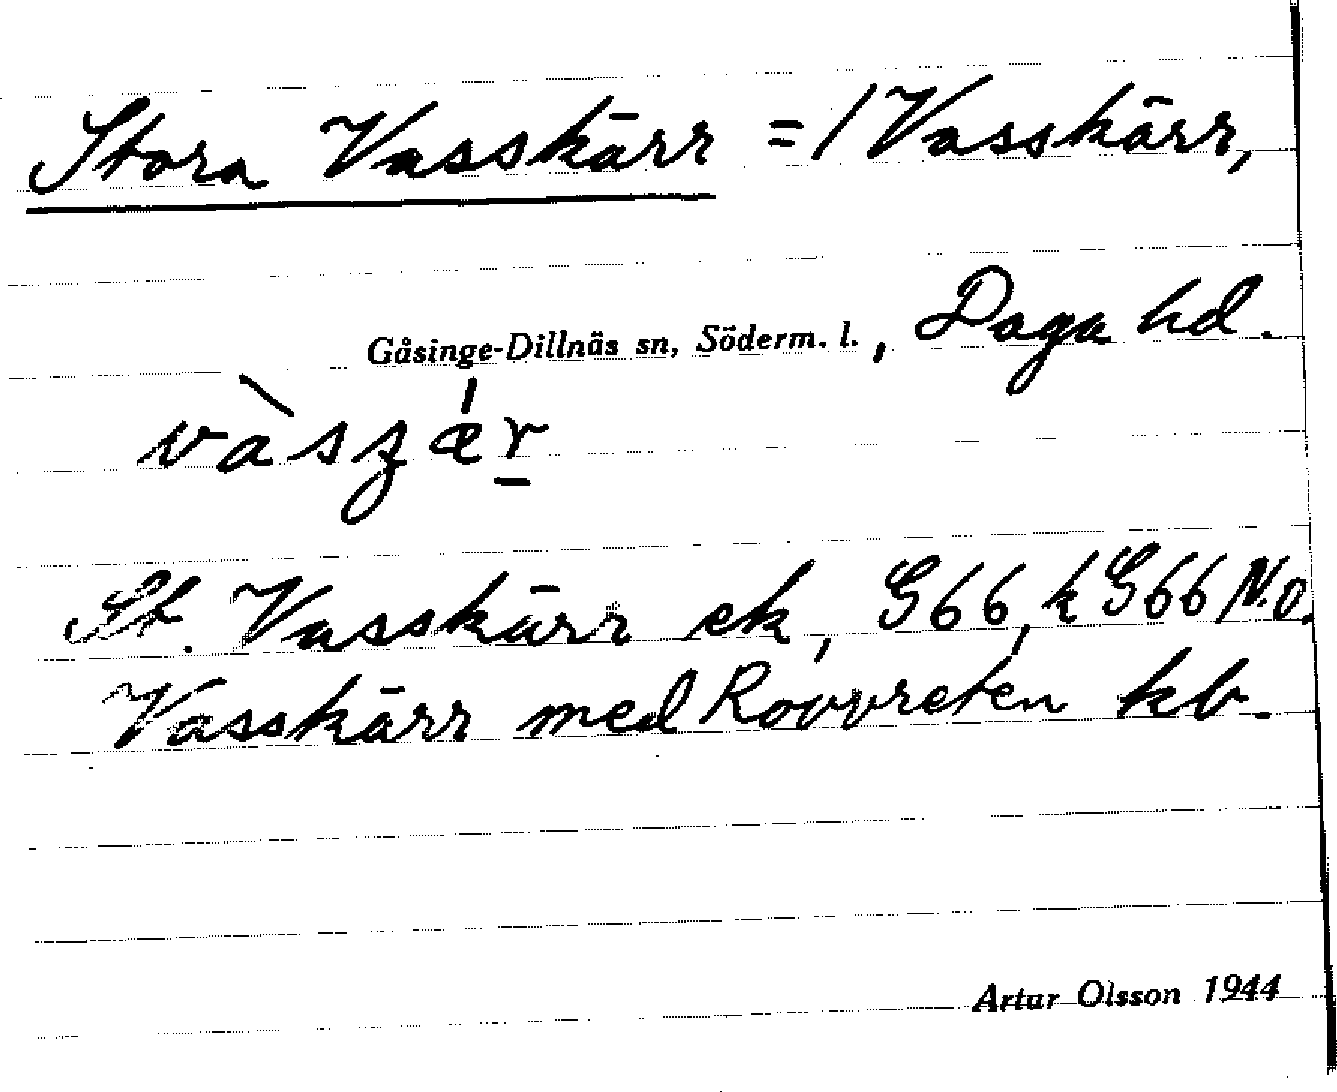 Stora Vasskärr = / Vasskärr,
Gåsinge-Dillnäs sn, Söderm. l., Daga hd.
St. Vasskärr ek, G66, k G66 N.o.
Vasskärr med Rovvreten kb.
Artur Olsson 1944